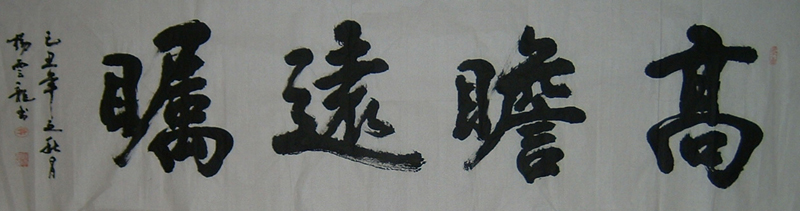 高瞻遠矚
己丑年之秋月
楊雲龍書